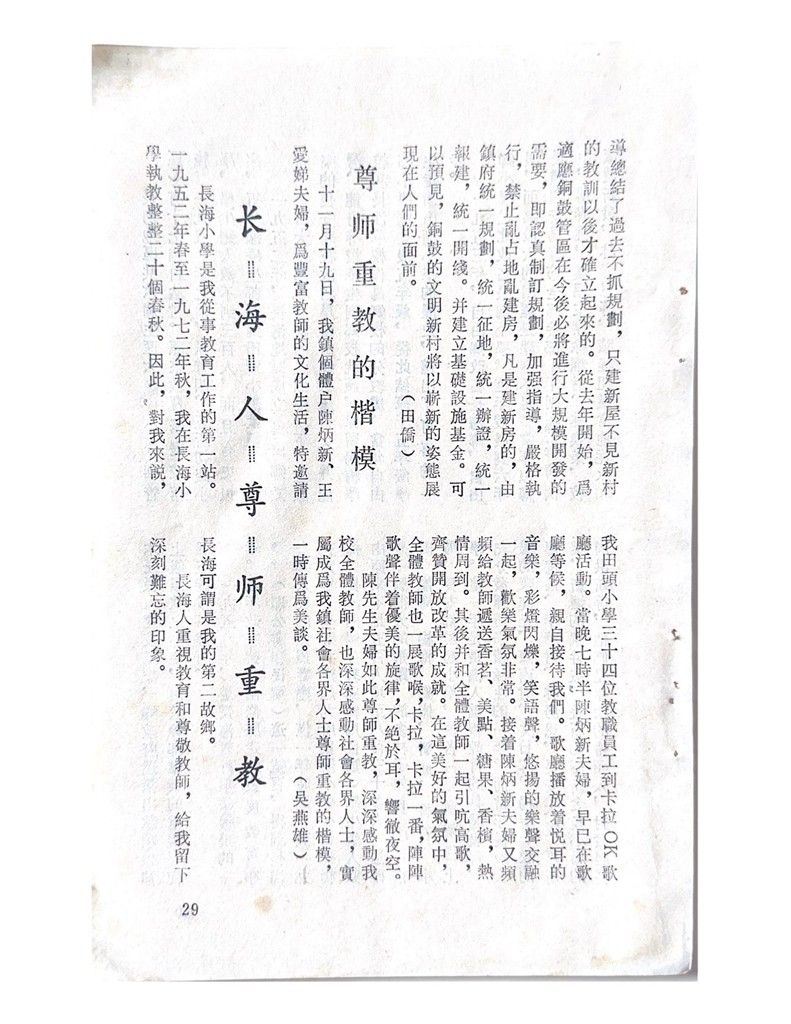 導總結了過去不抓規劃，只建新屋不見新村
的教訓以後才確立起來的。從去年開始，爲
適應銅鼓管區在今後必將進行大規模開發的
需要，即認真制訂規劃，加强指導，嚴格執
行，禁止亂占地亂建房，凡是建新房的，由
鎮府統一規劃，統一征地，統一辦證，統一
報建，統一開綫。并建立基礎設施基金。可
以預見，銅鼓的文明新村將以嶄新的姿態展
現在人們的面前。　　　　　　（田僑）
尊师重教的楷模
十一月十九日，我鎮個體户陳炳新、王
愛娣夫婦，爲豐富教師的文化生活，特邀請
我田頭小學三十四位教職員工到卡拉OK歌
廳活動。當晚七時半陳炳新夫婦，早已在歌
廳等候，親自接待我們。歌廳播放着悦耳的
音樂，彩燈閃爍，笑語聲，悠揚的樂聲交融
一起，歡樂氣氛非常。接着陳炳新夫婦又頻
頻給教師遞送香茗、美點、糖果、香檳，熱
情周到。其後并和全體教師一起引吭高歌，
齊贊開放改革的成就。在這美好的氣氛中，
全體教師也一展歌喉，卡拉，卡拉一番，陣陣
歌聲伴着優美的旋律，不絶於耳，響徹夜空。
陳先生夫婦如此尊師重教，深深感動我
校全體教師，也深深感動社會各界人士，實
屬成爲我鎮社會各界人士尊師重教的楷模，
一時傳爲美談。　　　　　　（吳燕雄）
长海人尊师重教
長海小學是我從事教育工作的第一站。
一九五二年春至一九七二年秋，我在長海小
學執教整整二十個春秋。因此，對我來説，
長海可謂是我的第二故鄉。
長海人重視教育和尊敬教師，給我留下
深刻難忘的印象。
29